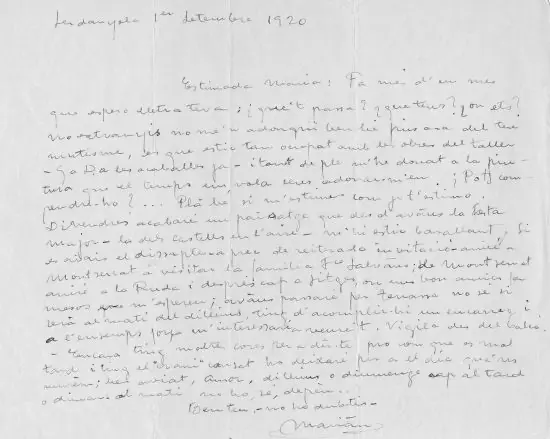 Cerdanyola 1er Setembre 1920
Estimada Maria: Fa més d'un mes
que espero lletra teva; ¿què't passa? ¿que tens? ¿on ets?
No estranyis no me'n adongui ben bé fins ara del teu
mutisme, és que estic tan ocupat amb les obres del taller
- Ja a les acaballes ja - i tant de ple m'he donat a la pin-
tura que el temps em vola sens adonarme'n. ¡Pots com-
pendre-ho? ... Plà bé si m'estimes com jo t'estimo.
Divendres acabaré un paisatge que des d'avans la Festa
major - la dels castells en l'aire - m'hi estic barallant. Si
és així el dissapte a prec de reiterada invitació aniré a
Montserrat a visitar la família Salvans; de Montserrat
aniré a la Ruda i després cap a Sitges, on uns bons amics fa
mesos m'esperen; avans passaré per Terrassa no sé si
serà al matí del dilluns, tinc d'acomplir-hi un encàrrec i
a l'ensemps força m'interessaria veure't. Vigila des del balcó.
- Encara tinc moltes coses per a dir-te pro com que es fa
tard i tinc el cansat ho deixaré per a el dia que'ns
veurem; ben aviat, amor, dilluns o diumenge cap al tard
o dimars al matí no ho sé, depèn...
Teu teu, - no ho dubtis -
Marian